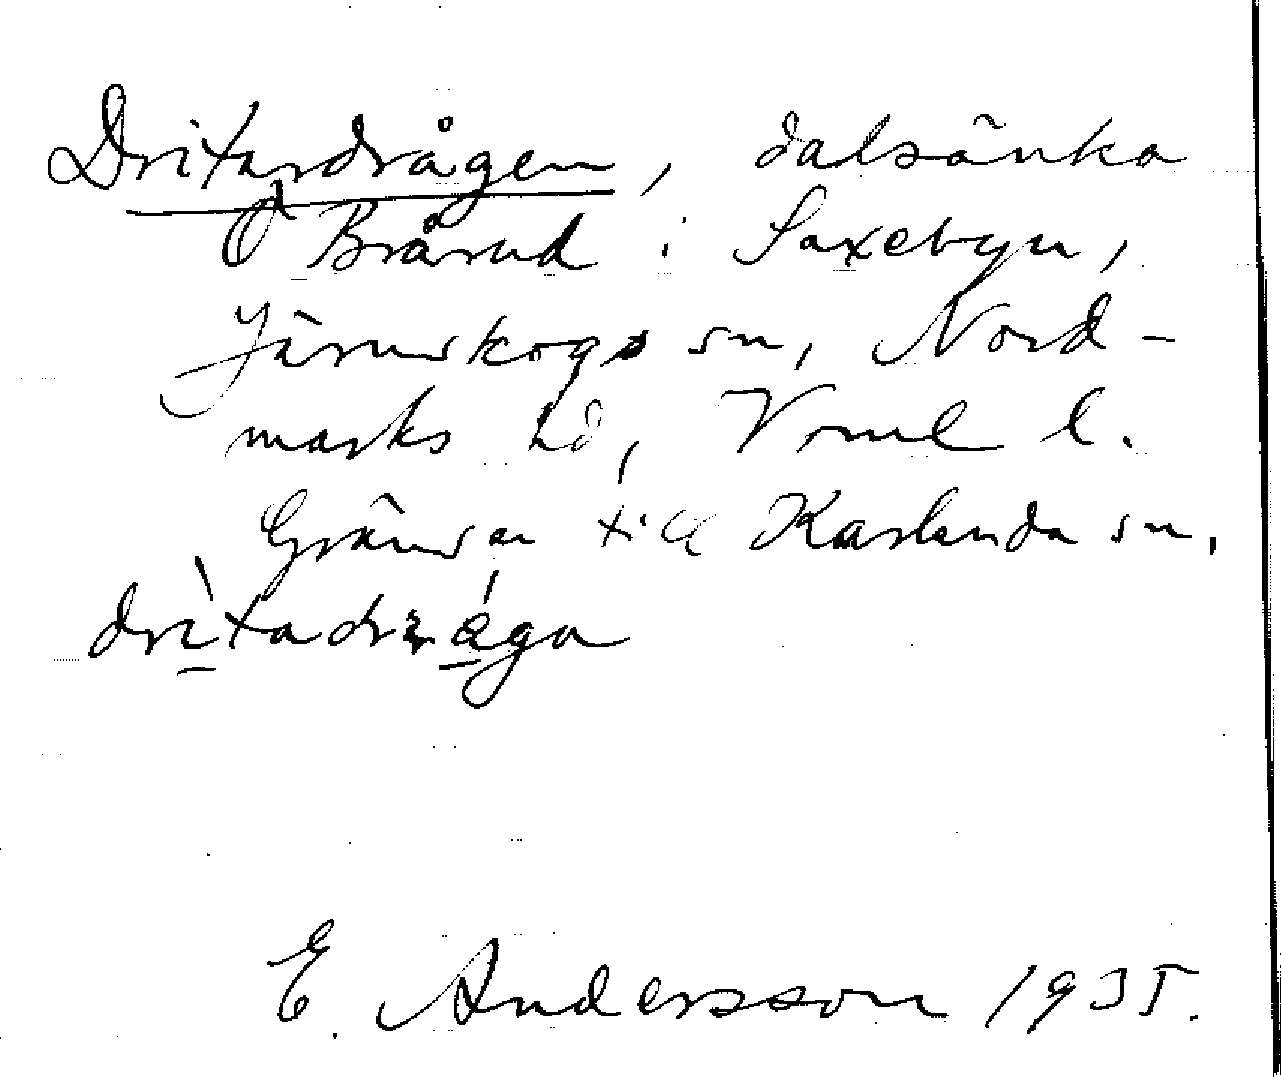 Dritardrågen, dalsänka
Ö Brårud i Saxebyn,
Järnskogs sn, Nord-
marks hd, Vrml l.
Gränsar till Karlanda sn.
dritadråga
E. Andersson 1935.